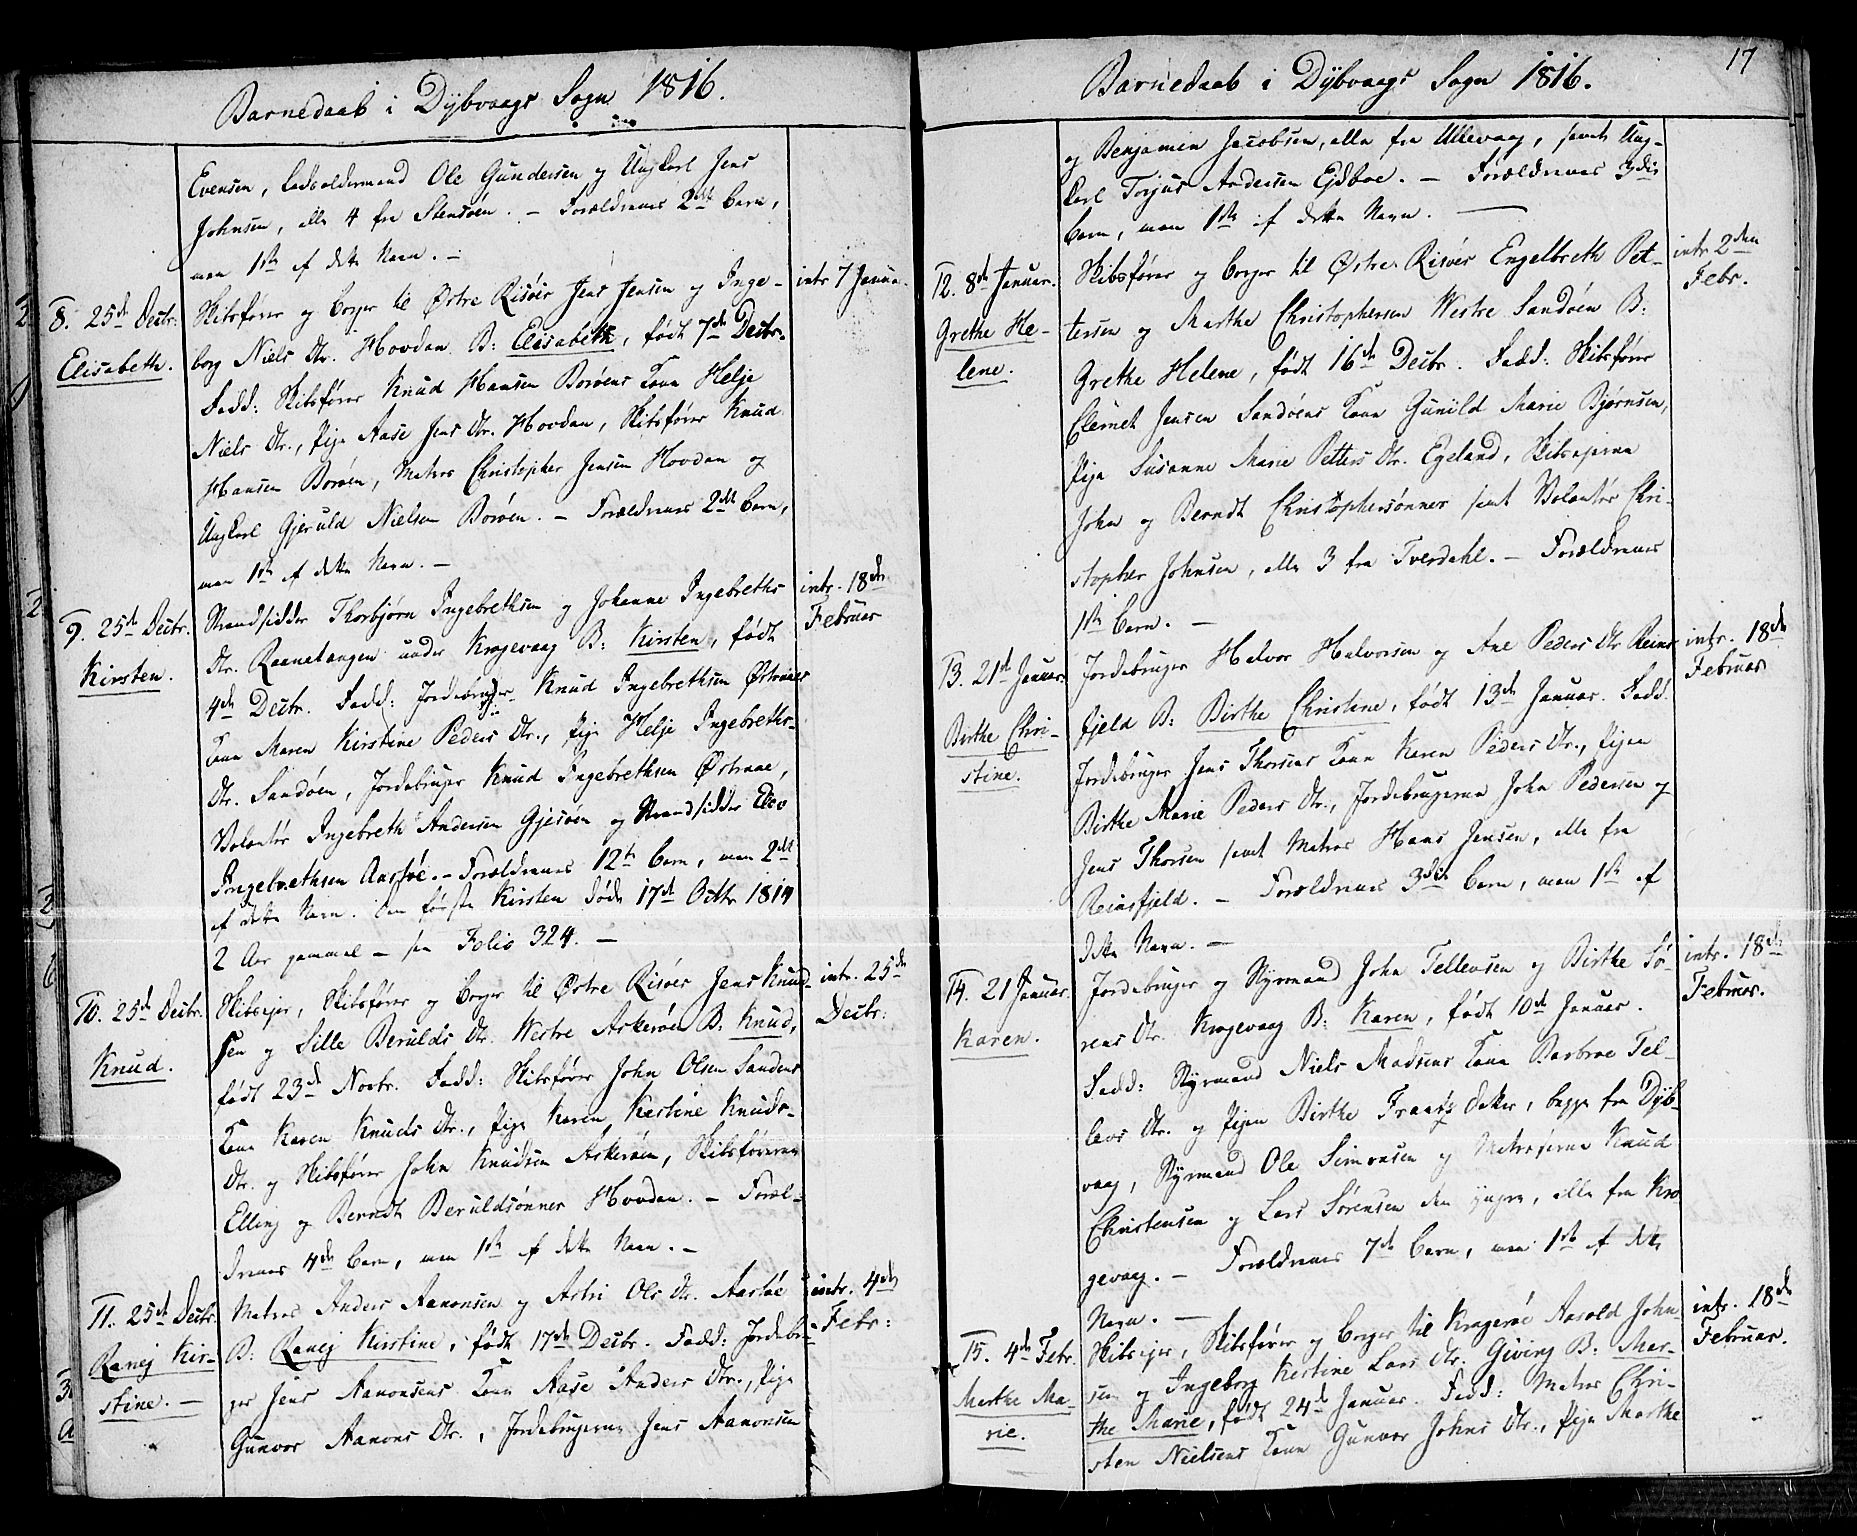 Barnedaab i Dÿbvaags Sogn 1816.
Evensen, Ladeoldermand Ole Gundersen og Ungkarl Jens
Johnsen, alle 4 fra Stensöen. – Forældrenes 2det Barn,
men 1ste af dette Navn. –
8. 25de Decbr.
Elisabeth.
Skibsfører og borger til Østre Risöer Jens Jensen og Inge-
borg Niels Dtr. Hovdan B: Elisabeth, födt 7de Decbr.
Fadd: Skibsfører Knud Hansen Boröens Kone Helje
Niels Dtr., Pige Aase Jens Dtr. Hovdan, Skibsfører Knud
Hansen Boröen, Matros Christopher Jensen Hovdan og
Ungkarl Gjeruld Nielsen Boröen. – Forældrenes 2det Barn,
men 1ste af dette Navn. –
intr 7 Januar.
9. 25de Decbr.
Kirsten.
Strandsidder Thorbjörn Ingebrethsen og Johanne Ingebreths
Dtr. Raanetangen under Krogevaag B: Kirsten, födt
4de Decbr. Fadd: Jordebruger Knud Ingebrethsen Østraaes
Kone Maren Kirstine Peders Dtr., Pige Helje Ingebreths-
Dtr. Sandöen, Jordebruger Knud Ingebrethsen Østraae,
Volontör Ingebreth Andersen Gjesöen og Strandsidder Elev
Ingebrethsen Aastöe. – Forældrenes 12te Barn, men 2det
af dette Navn. Den förste Kirsten döde 17de Octbr 1814
2 Aar gammel – see Folio 324. –
intr. 18de
Februar
10. 25de Decbr.
Knud.
Skibsejer, Skibsfører og borger til Østre Risöer Jens Knud-
sen og Sille Berulds Dtr. Westre Askeröen B: Knud,
födt 23de Novbr. Fadd: Skibsfører John Olsen Sandens
Kone Karen Knuds Dtr., Pige Karen Kestine Knuds-
Dtr. og Skibsfører John Knudsen Askeröen, Skibsførerne
Elling og Berndt Beruldsönner Hovdan. – Foræl-
drenes 4de Barn, men 1ste af dette Navn. –
intr. 25de
Decbr:
11. 25de Decbr.
Ranej Kir-
stine. –
Matros Anders Aanonsen og Astri Ols Dtr. Aastöe
B: Ranej Kirstine, födt 17de Decbr. Fadd: Jordebru-
ger Jens Aanonsens Kone Aase Anders Dtr., Pige
Gunvor Aanons Dtr., Jordebrugerne Jens Aanonsen
intr. 4de
Febr:
17
Barnedaab i Dÿbvaags Sogn 1816.
og Benjamin Jacobsen, alle fra Ullevaag, samt Ung-
karl Torjus Andersen Ejdboe. – Forældrenes 3die
Barn, men 1ste af dette Navn. –
12. 8de Januar.
Grethe He-
lene.
Skibsfører og borger til Østre Risöer Engelbreth Pet-
tersen og Marthe Christophersen Westre Sandöen B:
Grethe Helene, födt 16de Decbr. Fadd: Skibsfører
Clemet Jensen Sandöens Kone Gunild Marie Björnsen,
Pige Susanne Marie Petters Dtr. Egeland, Skibsejerne
John og Berndt Christophersönner samt Volontör Chri-
stopher Johnsen, alle 3 fra Tverdahl. – Forældrenes
1ste Barn. –
intr. 2den
Febr.
13. 21de Januar.
Birthe Chri-
stine.
Jordebruger Halvor Halvorsen og Ane Peders Dtr Reins
fjeld B: Birthe Christine, födt 13de Januar. Fadd.
Jordebruger Jens Thorsens Kone Karen Peders Dtr., Pigen
Birthe Marie Peders Dtr., Jordebrugerne John Pedersen og
Jens Thorsen samt Matros Hans Jensen, alle fra
Reinsfjeld. – Forældrenes 3die Barn, men 1ste af
dette Navn. –
intr. 18de
Februar
14. 21 Januar.
Karen.
Jordebruger og Styrmand John Tellevsen og Birthe Sö-
rens Dtr. Krogevaag B: Karen, födt 10de Januar.
Fadd: Styrmand Niels Madsens Kone Barbroe Tel-
levs Dtr. og Pigen Birthe Frants datter, begge fra Dÿb-
vaag, Styrmand Ole Simonsen og Matroserne Knud
Christensen og Lars Sörensen den yngre, alle fra Kro
gevaag. – Forældrenes 7de Barn, men 1ste af dette
Navn. –
intr. 18de
Februar.
15. 4de Febr.
Marthe Ma-
rie.
Skibsejer, Skibsfører og borger til Krageröe Aasold John-
sen og Ingeborg Kestine Lars Dtr. Giving B: Mar-
the Marie, födt 24de Januar. Fadd: Matros Chri-
sten Nielsens Kone Gunvor Johns Dtr., Pige Marthe
intr. 18de
Februar.